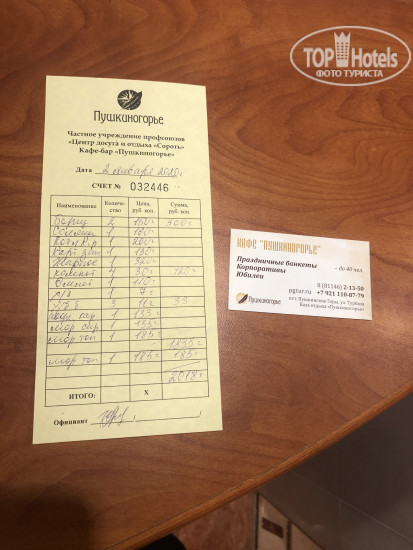 TOP Hotels
ФОТО ТУРИСТА
Пушкиногорье
Частное учреждение профсоюзов
«Центр досуга и отдыха «Сороть»
Кафе-бар «Пушкиногорье»
Дата 2 января 2020 г
СЧЕТ № 032446
Наименование Количество Цена, руб. коп. Сумма, руб. коп.
Борщ 2 150 300=
1 180
1 200=
1 190
1
4 30= 120=
1 110=
1 7=
3 11= 33
1 133=
1 155=
мор топ 1 185=
1835=
мор топ 1 185= 185=
2018=
ИТОГО: X
Официант
КАФЕ "ПУШКИНОГОРЬЕ"
Праздничные банкеты – до 40 чел.
Корпоративы
Юбилеи
8 (81146) 2-13-50
pgtur.ru +7 921 110-07-79
Пушкиногорье
пгт Пушкинские Горы, ул. Турбаза
База отдыха «Пушкиногорье»